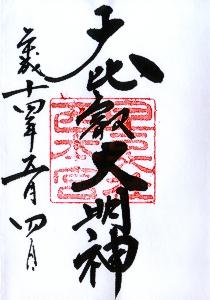 子比叡大明神
平成十四年五月四日